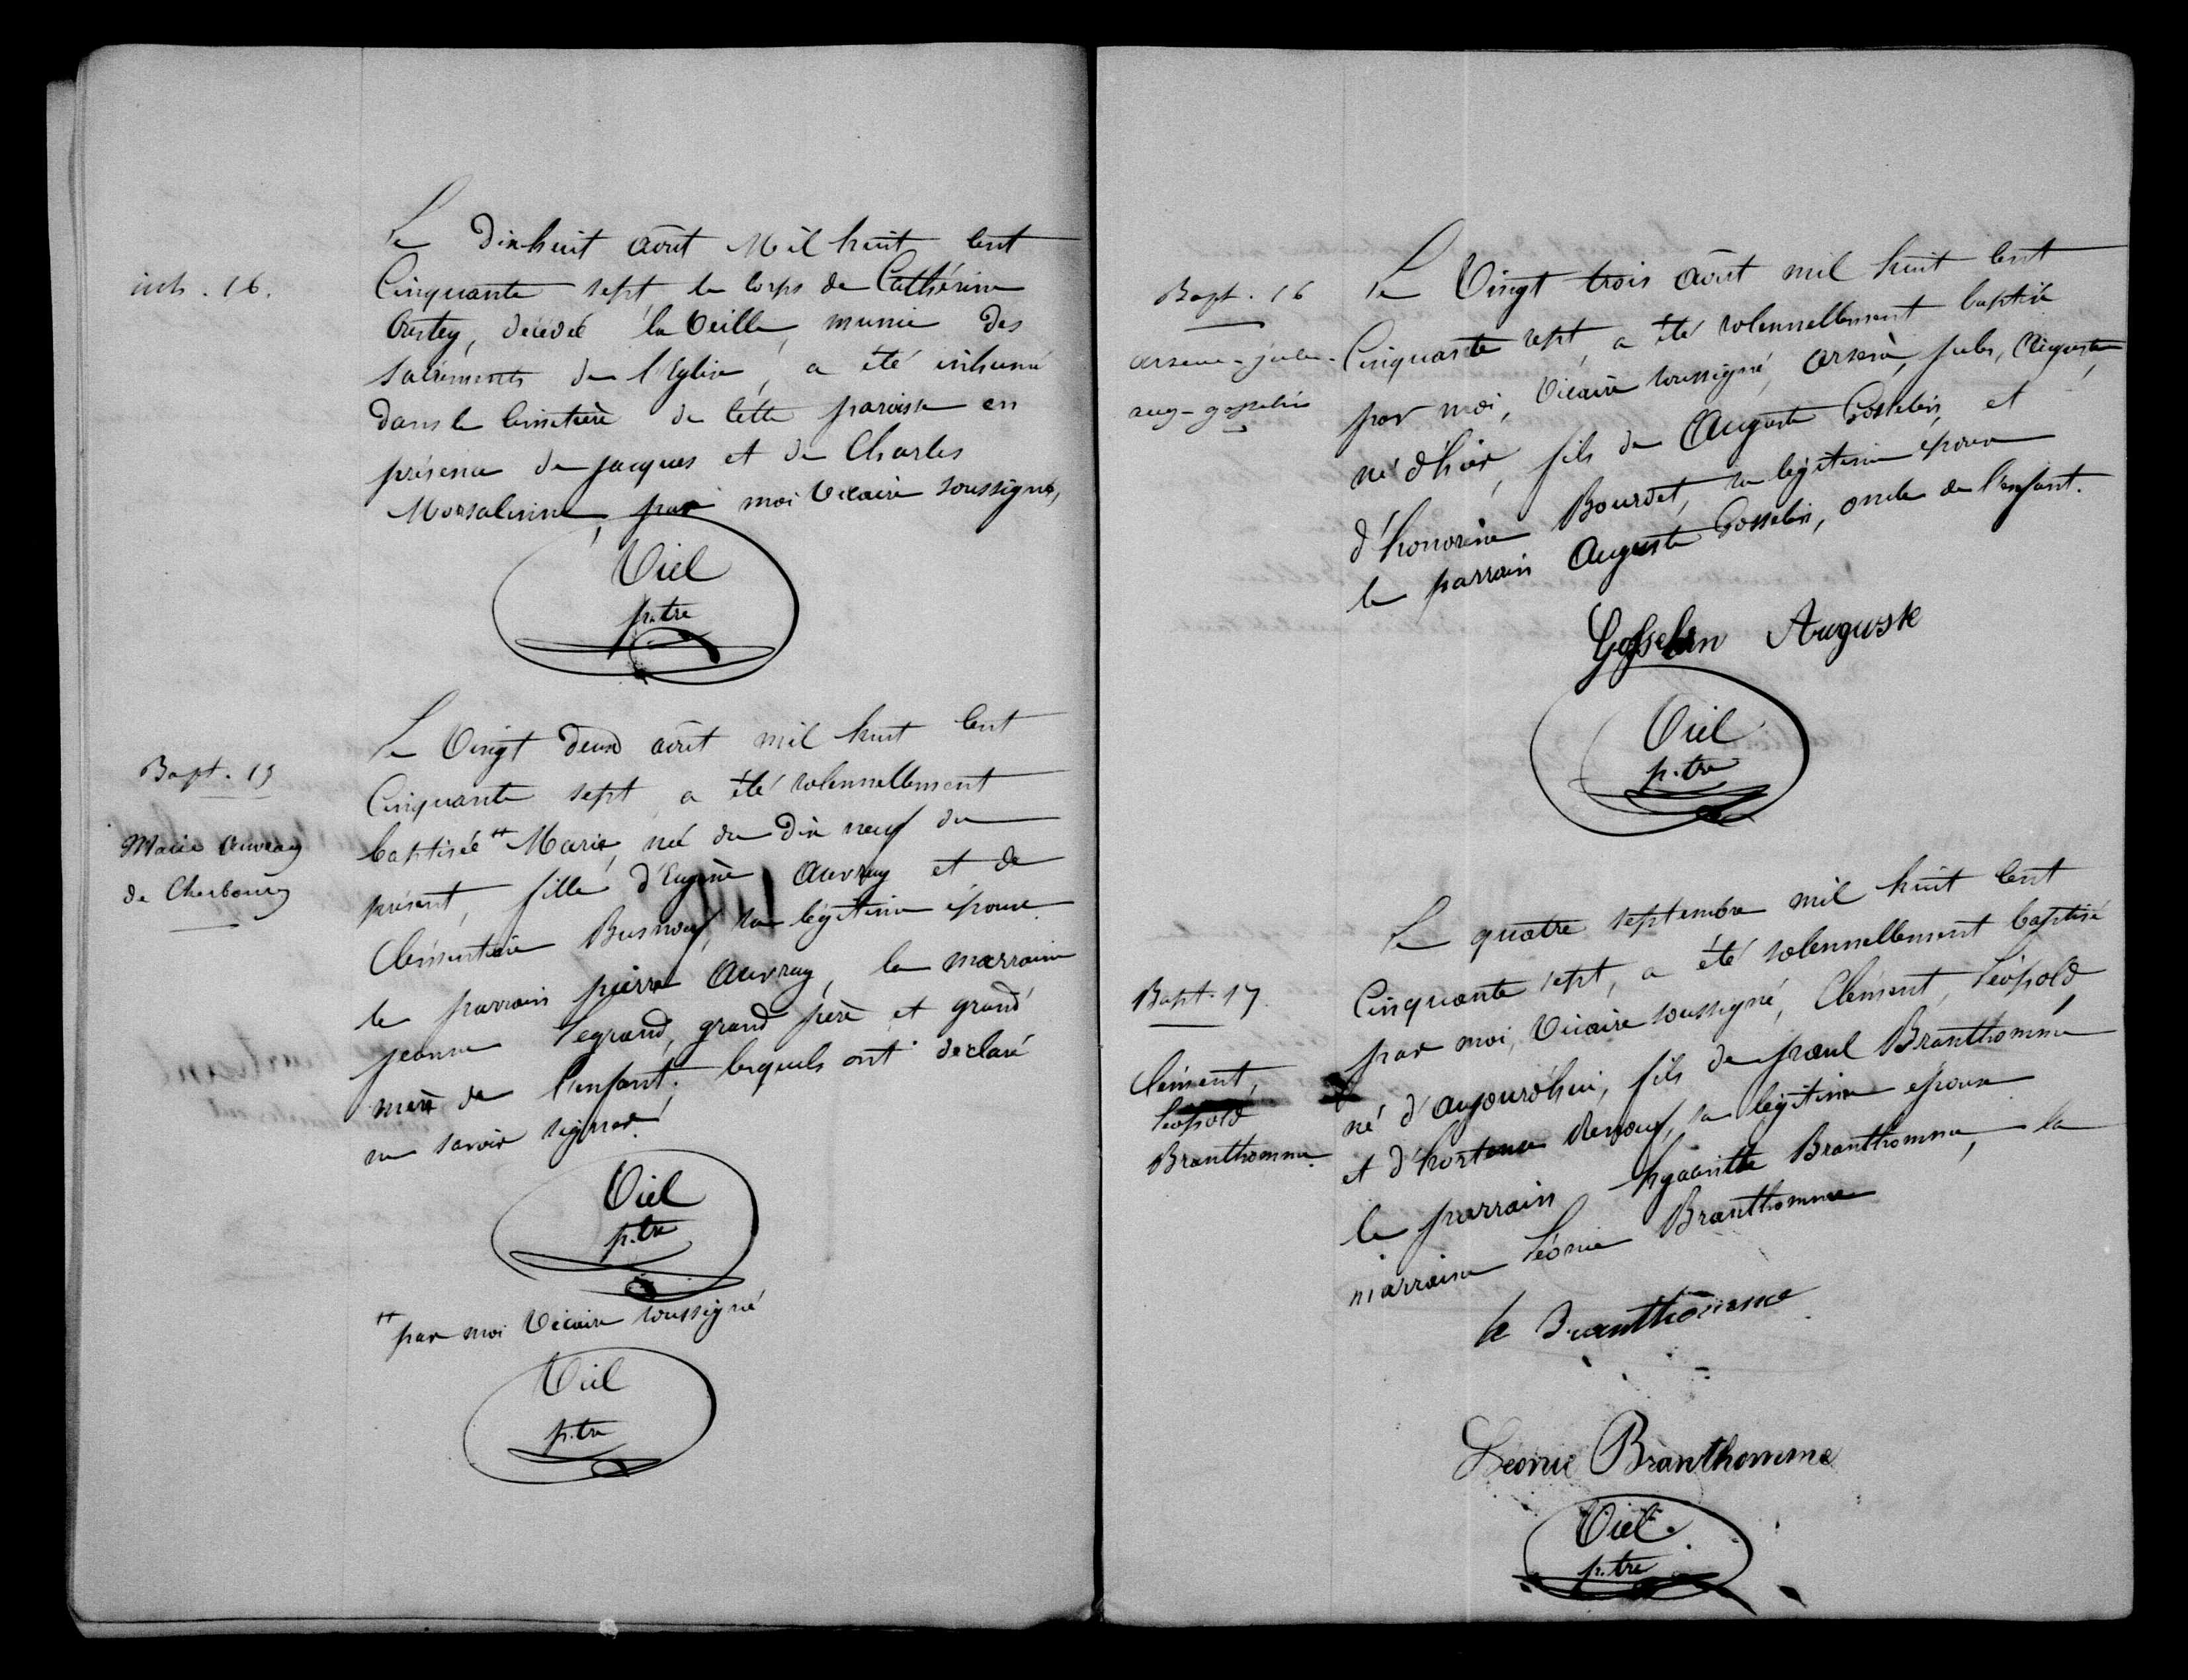 inh. 16.
Le dix huit août Mil huit cent
Cinquante sept le corps de Cathérine
décédée la veille, munie des
sacrements de l'Eglise, a été inhumé
dans le cimetière de cette paroisse en
présence de jacques et de Charles
Morsalinne, par moi Vicaire soussigné,
Viel
p.tre
Bapt. 15
Marie Auvray
de Cherbourg
Le Vingt deux août mil huit cent
Cinquante sept a été solennellement
baptisée ++ Marie, née du dix neuf du
présent, fille d'Eugène Auvray et de
Clémentine Busnouf, sa légitime épouse
le parrain pierre Auvray, la marraine
jeanne Legrand, grand père et grand'
mère de l'enfant. lesquels ont déclaré
ne savoir signer.
Viel
p.tre
++ par moi Vicaire soussigné
Viel
p.tre
Bapt. 16
arsene-jules-
aug-gosselin
Le Vingt trois août mil huit cent
Cinquante sept, a été solennellement baptisé
par moi, Vicaire soussigné, Arsène, jules, Auguste,
né d'hier, fils de Auguste Gosselin, et
d'honorine Bourdet, sa légitime épouse
le parrain Auguste Gosselin, oncle de l'enfant.
Gosselin Auguste
Viel
p.tre
Bapt. 17.
Clément,
Léopold
Branthomme.
Le quatre septembre mil huit cent
Cinquante sept, a été solennellement baptisé
par moi, Vicaire soussigné, Clément, Léopold,
né d'aujourd'hui, fils de paul Branthomme
et d'hortense Renouf, sa légitime épouse
le parrain hyacinthe Branthomme, la
marraine Léonie Branthomme
h Branthomme
Léonie Branthomme
Viel.
p.tre